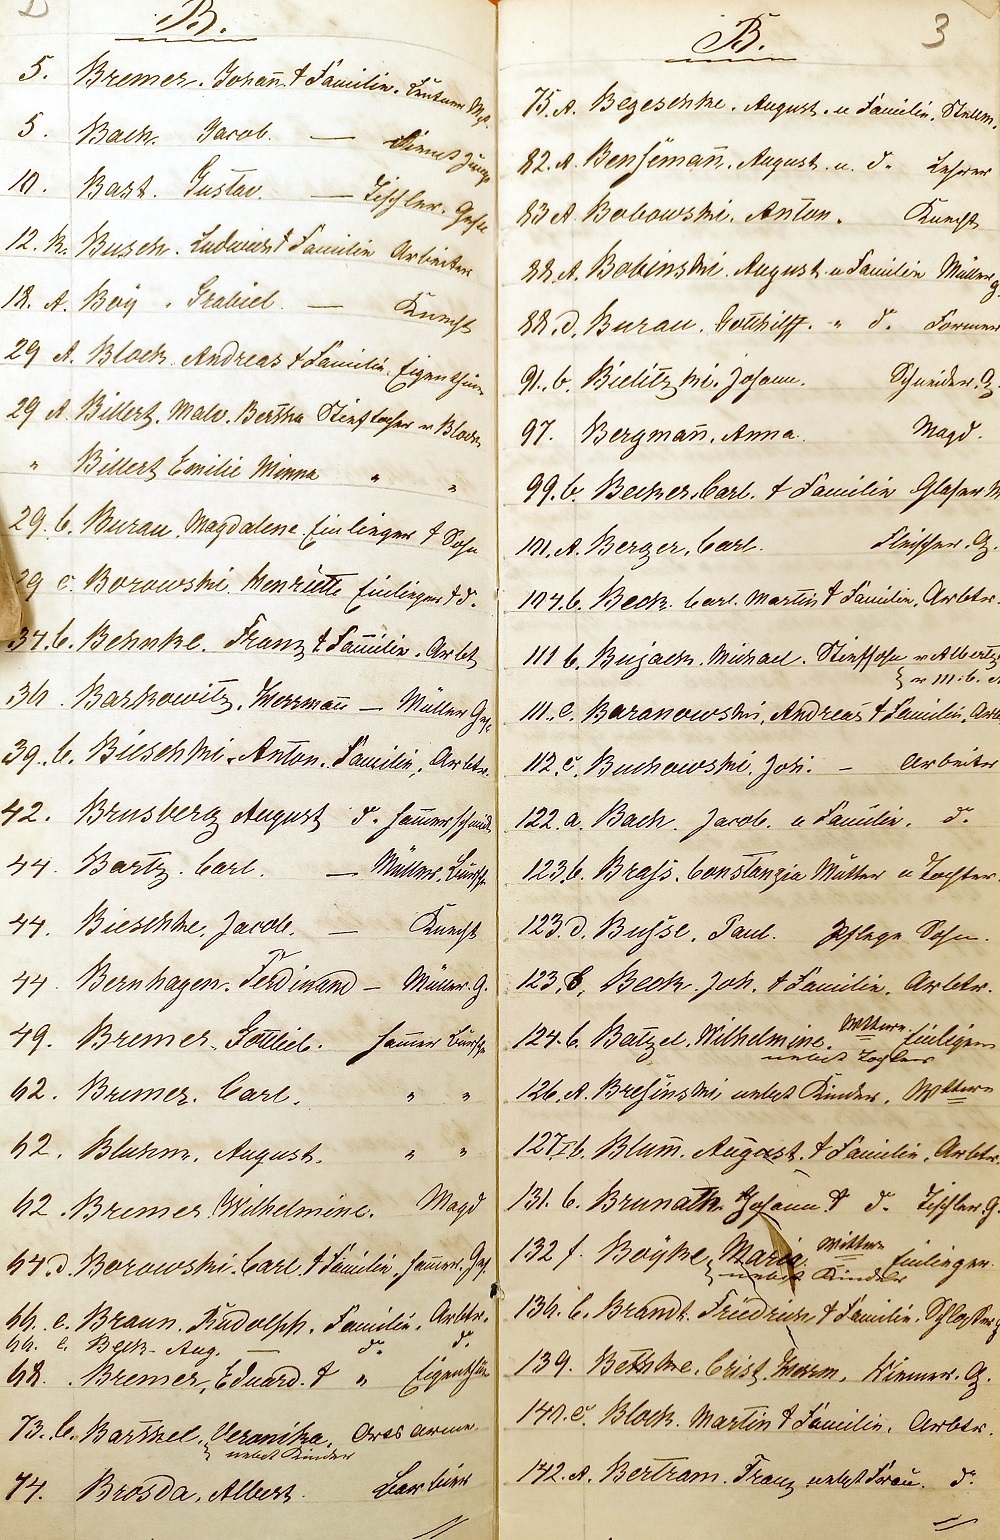 B.
5. Bremer. Johann & Familie.
5. Bach. Jacob. — Dienst Junge
10. Bast. Gustav. — Tischler. Geselle
12. Busch. Ludwich & Familie Arbeiter
18. A. Boÿ. Grabiel. — Knecht
29 A. Block. Andreas & Familie. Eigenthüm
29 A. Billert. Malv. Bertha Stieftochter v Block
" Billert Emilie Minna " "
29. b. Burau. Magdalene Einlieger & Sohn
29 c. Borowski Henriette Einlieger & d.
34. b. Behnke. Franz & Familie. Arbt
36. Barkowitz. Herrmann — Müller Ges
39. b. Bieschki. Anton. Familie. Arbtr.
42. Brusberg August d. Hammerschmid
44. Bartz. Carl. — Müller. Bursche
44. Bieschke. Jacob. — Knecht
44. Bernhagen. Ferdinand — Müller. G.
49. Bremer. Gottlieb. Hammer Bursche
62. Bremer. Carl. " "
62. Bluhm. August. " "
62. Bremer Wilhelmine. Magd
64. d. Borowski. Carl. & Familie. Hammer. Ges.
66. c. Braun. Rudolph. Familie. Arbtr.
66. c. Aug. — d. d.
68. Bremer, Eduard. & " Eigenthüm
73. b. Barthel. Veronika. Orts arme
nebst Kinder
74. Brosda. Albert. Barbier
B. 3
75. A. Bezeschke. August. u Familie.
82. A. Bensemann. August. u. d. Lehrer
83 A. Bobowski. Anton. Knecht
88. A. Bobinski. August. u Familie Müller G
88. d. Burau. Gotthilff. " d. Former
91. b. Bielitzki. Johann. Schneider. G.
97. Bergmann. Anna. Magd.
99. b. Becker. Carl. & Familie Glaser M
101. A. Berger. Carl. Fleischer. G.
104. b. Beck. Carl. Martin & Familie. Arbtr.
111 b. Bujack. Michael. Stiefsohn v Albertz
v 111. b.
111. c. Baranowski. Andreas & Familie. Arb
112. c. Buchowski. Joh. — Arbeiter
122. a. Bach. Jacob. u Familie. d.
123. b. Brass. Constanzia Mutter u Tochter.
123. d. Busse. Paul. Pflege Sohn.
123. Beck. Joh. & Familie. Arbtr.
124. b. Batzel. Wilhelmine. Wittwe. Einlieger
nebst Tochter
126. A. Bresinski nebst Kinder. Wittwe
127 b. Blum. August. & Familie. Arbtr.
131. b. Brunath. Johann & d. Tischler G.
132 f. Boÿke, Maria. Wittwe Einlieger.
nebst Kinder
136. b. Brandt. Friedrich & Familie. Schlosser G
139. Bethke. Crist. Herm. Riemer. G.
140. c. Block. Martin & Familie. Arbtr.
142. A. Bertram. Franz nebst Frau. d.